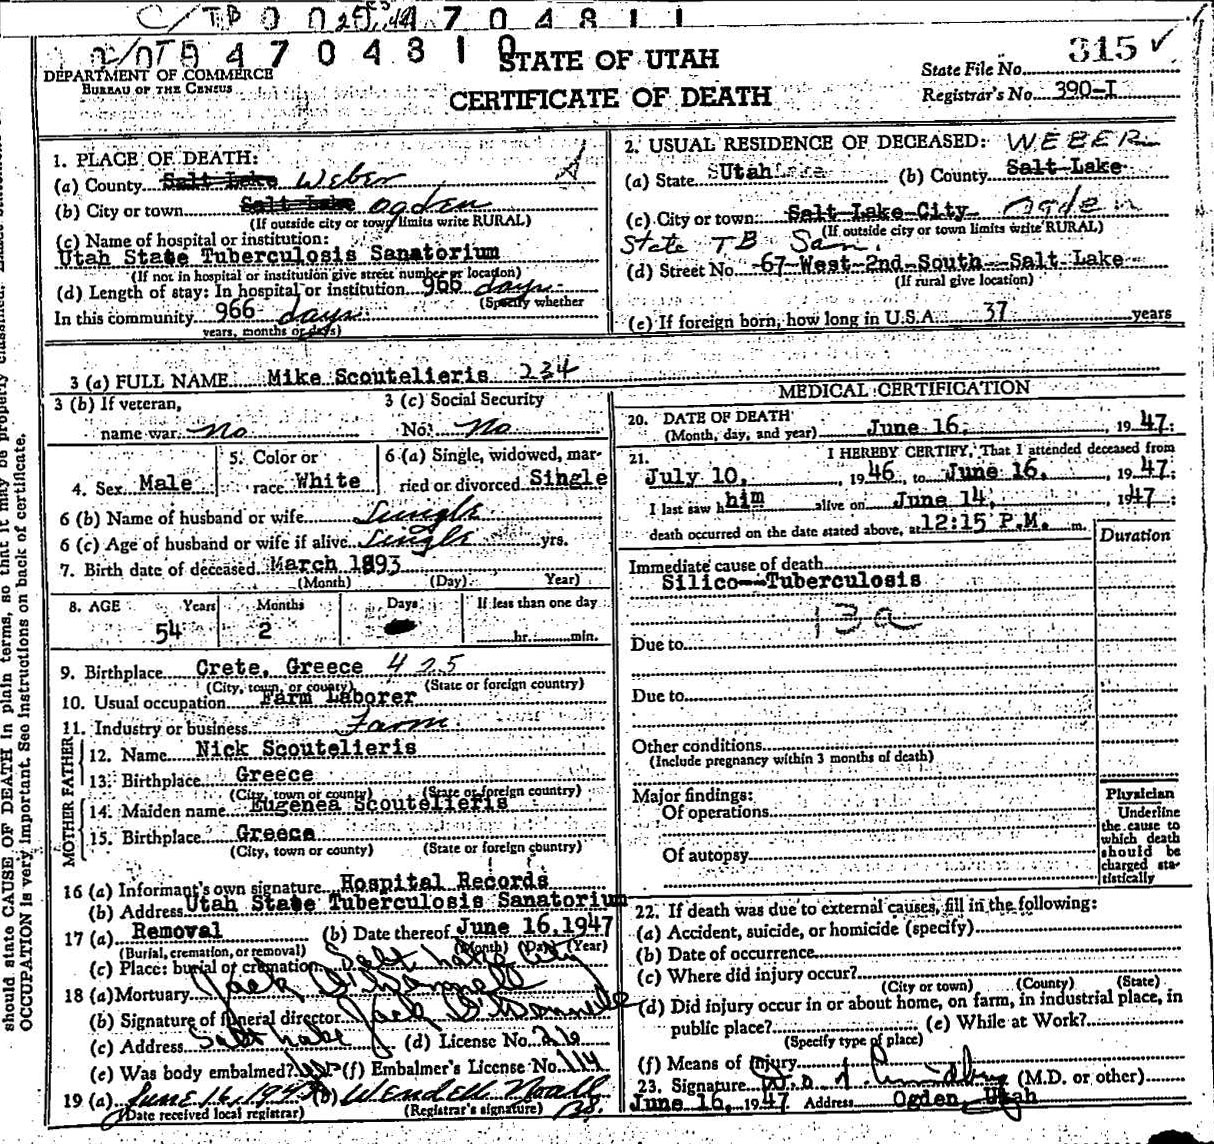 C/TB 0 0 4 7 0 4 8 1 1
4 7 0 4 8 1 0
STATE OF UTAH
CERTIFICATE OF DEATH
DEPARTMENT OF COMMERCE
BUREAU OF THE CENSUS
State File No. 315 ✓
Registrar's No. 390-I
1. PLACE OF DEATH:
(a) County Salt Lake Weber
(b) City or town Salt Lake Ogden
(If outside city or town limits write RURAL)
(c) Name of hospital or institution:
Utah State Tuberculosis Sanatorium
(If not in hospital or institution give street number or location)
(d) Length of stay: In hospital or institution 966 days
(Specify whether
In this community 966 days
years, months or days)
2. USUAL RESIDENCE OF DECEASED: WEBER
(a) State Utah (b) County Salt Lake
(c) City or town: Salt Lake City Ogden
(If outside city or town limits write RURAL)
State TB San.
(d) Street No. 67 West 2nd South Salt Lake
(If rural give location)
(e) If foreign born, how long in U.S.A. 37 years
3 (a) FULL NAME Mike Scoutelieris 234
3 (b) If veteran,
name war No
3 (c) Social Security
No. No
4. Sex Male
5. Color or
race White
6 (a) Single, widowed, mar-
ried or divorced Single
6 (b) Name of husband or wife Single
6 (c) Age of husband or wife if alive Single yrs.
7. Birth date of deceased March 1893
(Month) (Day) Year)
8. AGE Years Months Days If less than one day
54 2 hr. min.
9. Birthplace Crete, Greece 425
(City, town, or county) (State or foreign country)
10. Usual occupation Farm Laborer
11. Industry or business Farm
FATHER
12. Name Nick Scoutelieris
13. Birthplace Greece
(City, town or county) (State or foreign country)
MOTHER
14. Maiden name Eugenea Scoutelieris
15. Birthplace Greece
(City, town or county) (State or foreign country)
16 (a) Informant's own signature Hospital Records
(b) Address Utah State Tuberculosis Sanatorium
17 (a) Removal (b) Date thereof June 16, 1947
(Burial, cremation, or removal) (Month) (Day) (Year)
(c) Place: burial or cremation Salt Lake City
18 (a) Mortuary Jack O'Donnell
(b) Signature of funeral director Jack O'Donnell
(c) Address Salt Lake (d) License No. 26
(e) Was body embalmed? (f) Embalmer's License No. 114
19 (a) June 16, 1947 (b) Wendell Noall
(Date received local registrar) (Registrar's signature)
MEDICAL CERTIFICATION
20. DATE OF DEATH
(Month, day, and year) June 16, 1947:
21. I HEREBY CERTIFY, That I attended deceased from
July 10, 1946, to June 16, 1947:
I last saw him alive on June 14, 1947
death occurred on the date stated above, at 12:15 P.M. m.
Duration
Immediate cause of death
Silico--Tuberculosis
13a
Due to
Due to
Other conditions
(Include pregnancy within 3 months of death)
Major findings:
Of operations
Of autopsy
Physician
Underline
the cause to
which death
should be
charged sta-
tistically
22. If death was due to external causes, fill in the following:
(a) Accident, suicide, or homicide (specify)
(b) Date of occurrence
(c) Where did injury occur?
(City or town) (County) (State)
(d) Did injury occur in or about home, on farm, in industrial place, in
public place? (e) While at Work?
(Specify type of place)
(f) Means of Injury
23. Signature (M.D. or other)
June 16, 1947 Address Ogden, Utah
should state CAUSE OF DEATH in plain terms, so that it may be properly classified.
OCCUPATION is very important. See instructions on back of certificate.